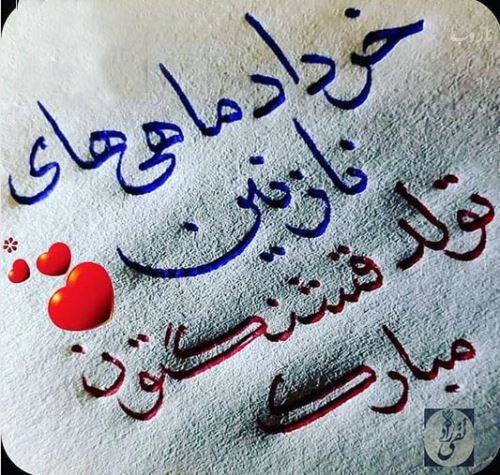 خردادماهی‌های
نازنین
تولد قشنگتون
مبارک